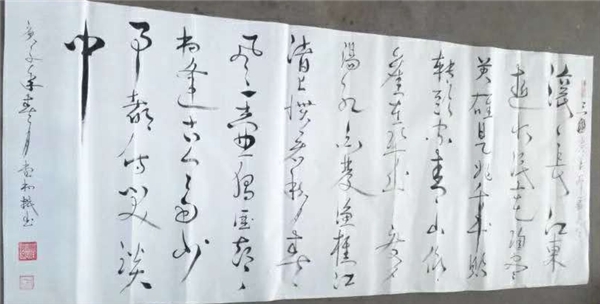 滚々長江東
逝水浪花淘尽
英雄是非成败
转头空青山依
旧在几度夕
陽红白发渔樵江
渚上惯看秋月春
风一壶浊酒喜
相逢古今多少
事都付笑谈
中
年春月 书